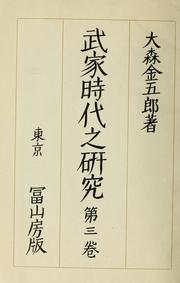 大森金五郎著
武家時代之研究 第三卷
東京 冨山房版